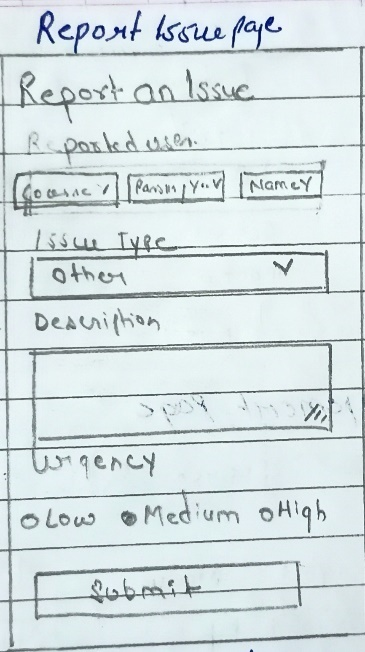 Report Issue page
Report an Issue
Reported user.
Name Y
Issue Type
Other
Description
Urgency
Low Medium High
Submit